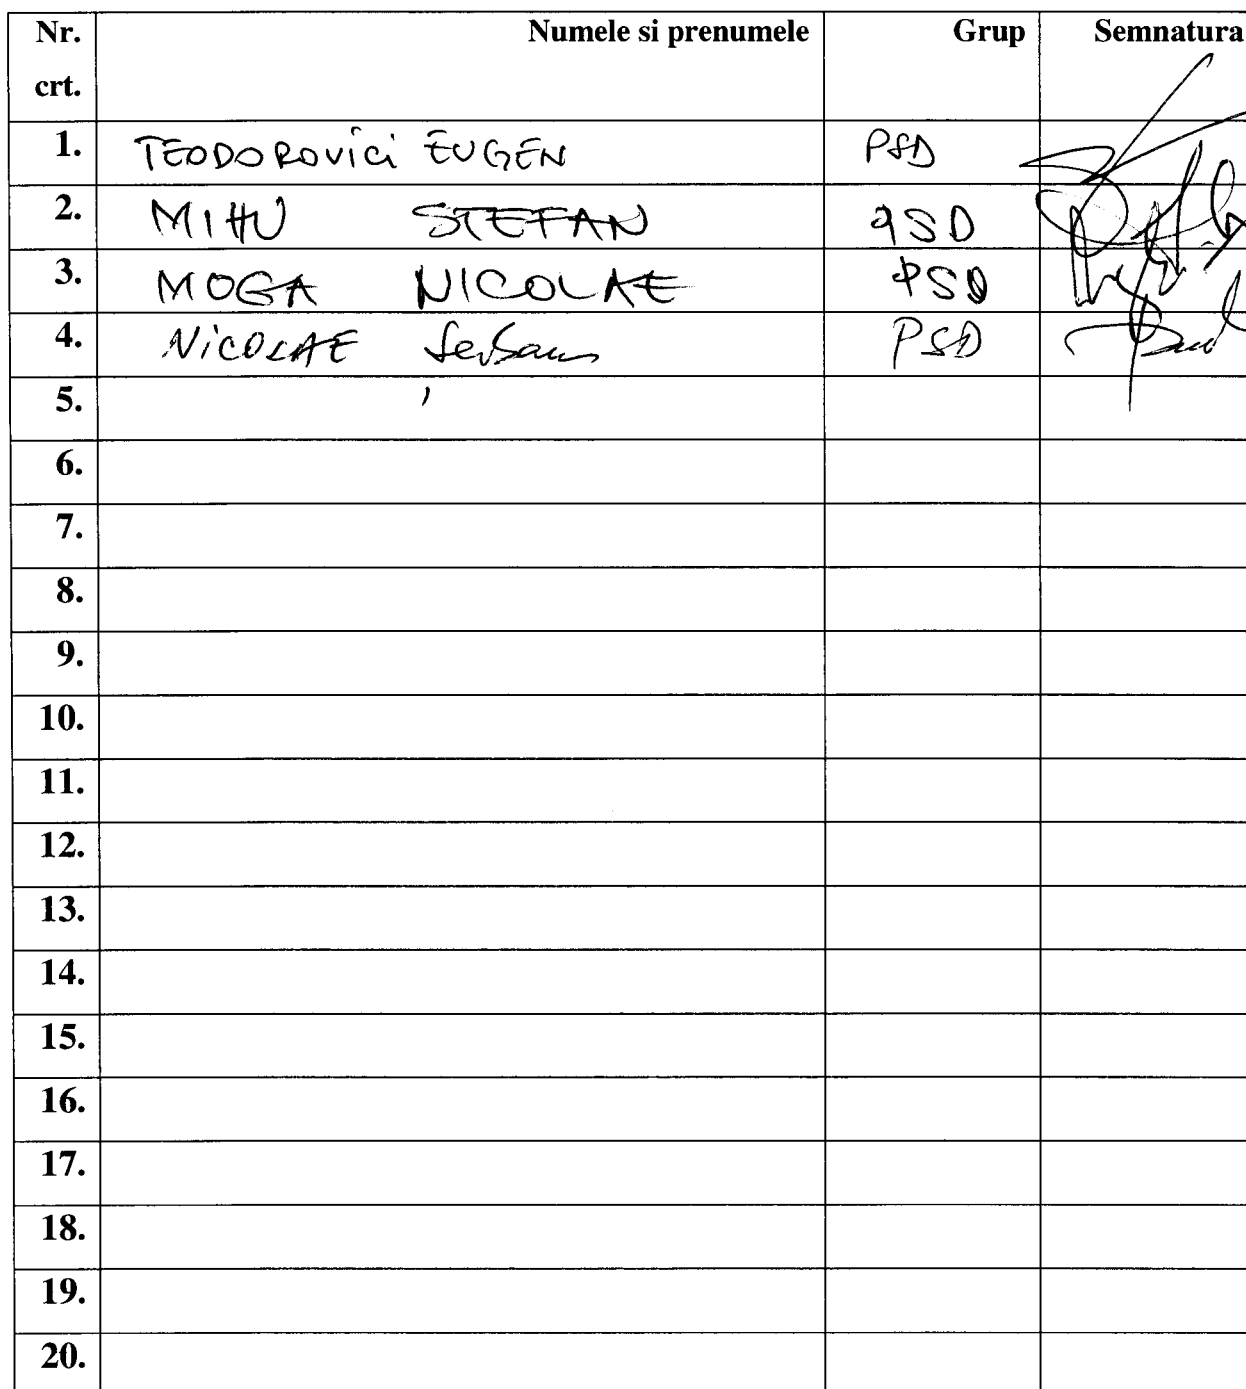 Nr. crt. Numele si prenumele Grup Semnatura
1. TEODOROVICI EUGEN PSD
2. MIHU STEFAN PSD
3. MOGA NICOLAE PSD
4. NICOLAE Serban PSD
5.
6.
7.
8.
9.
10.
11.
12.
13.
14.
15.
16.
17.
18.
19.
20.